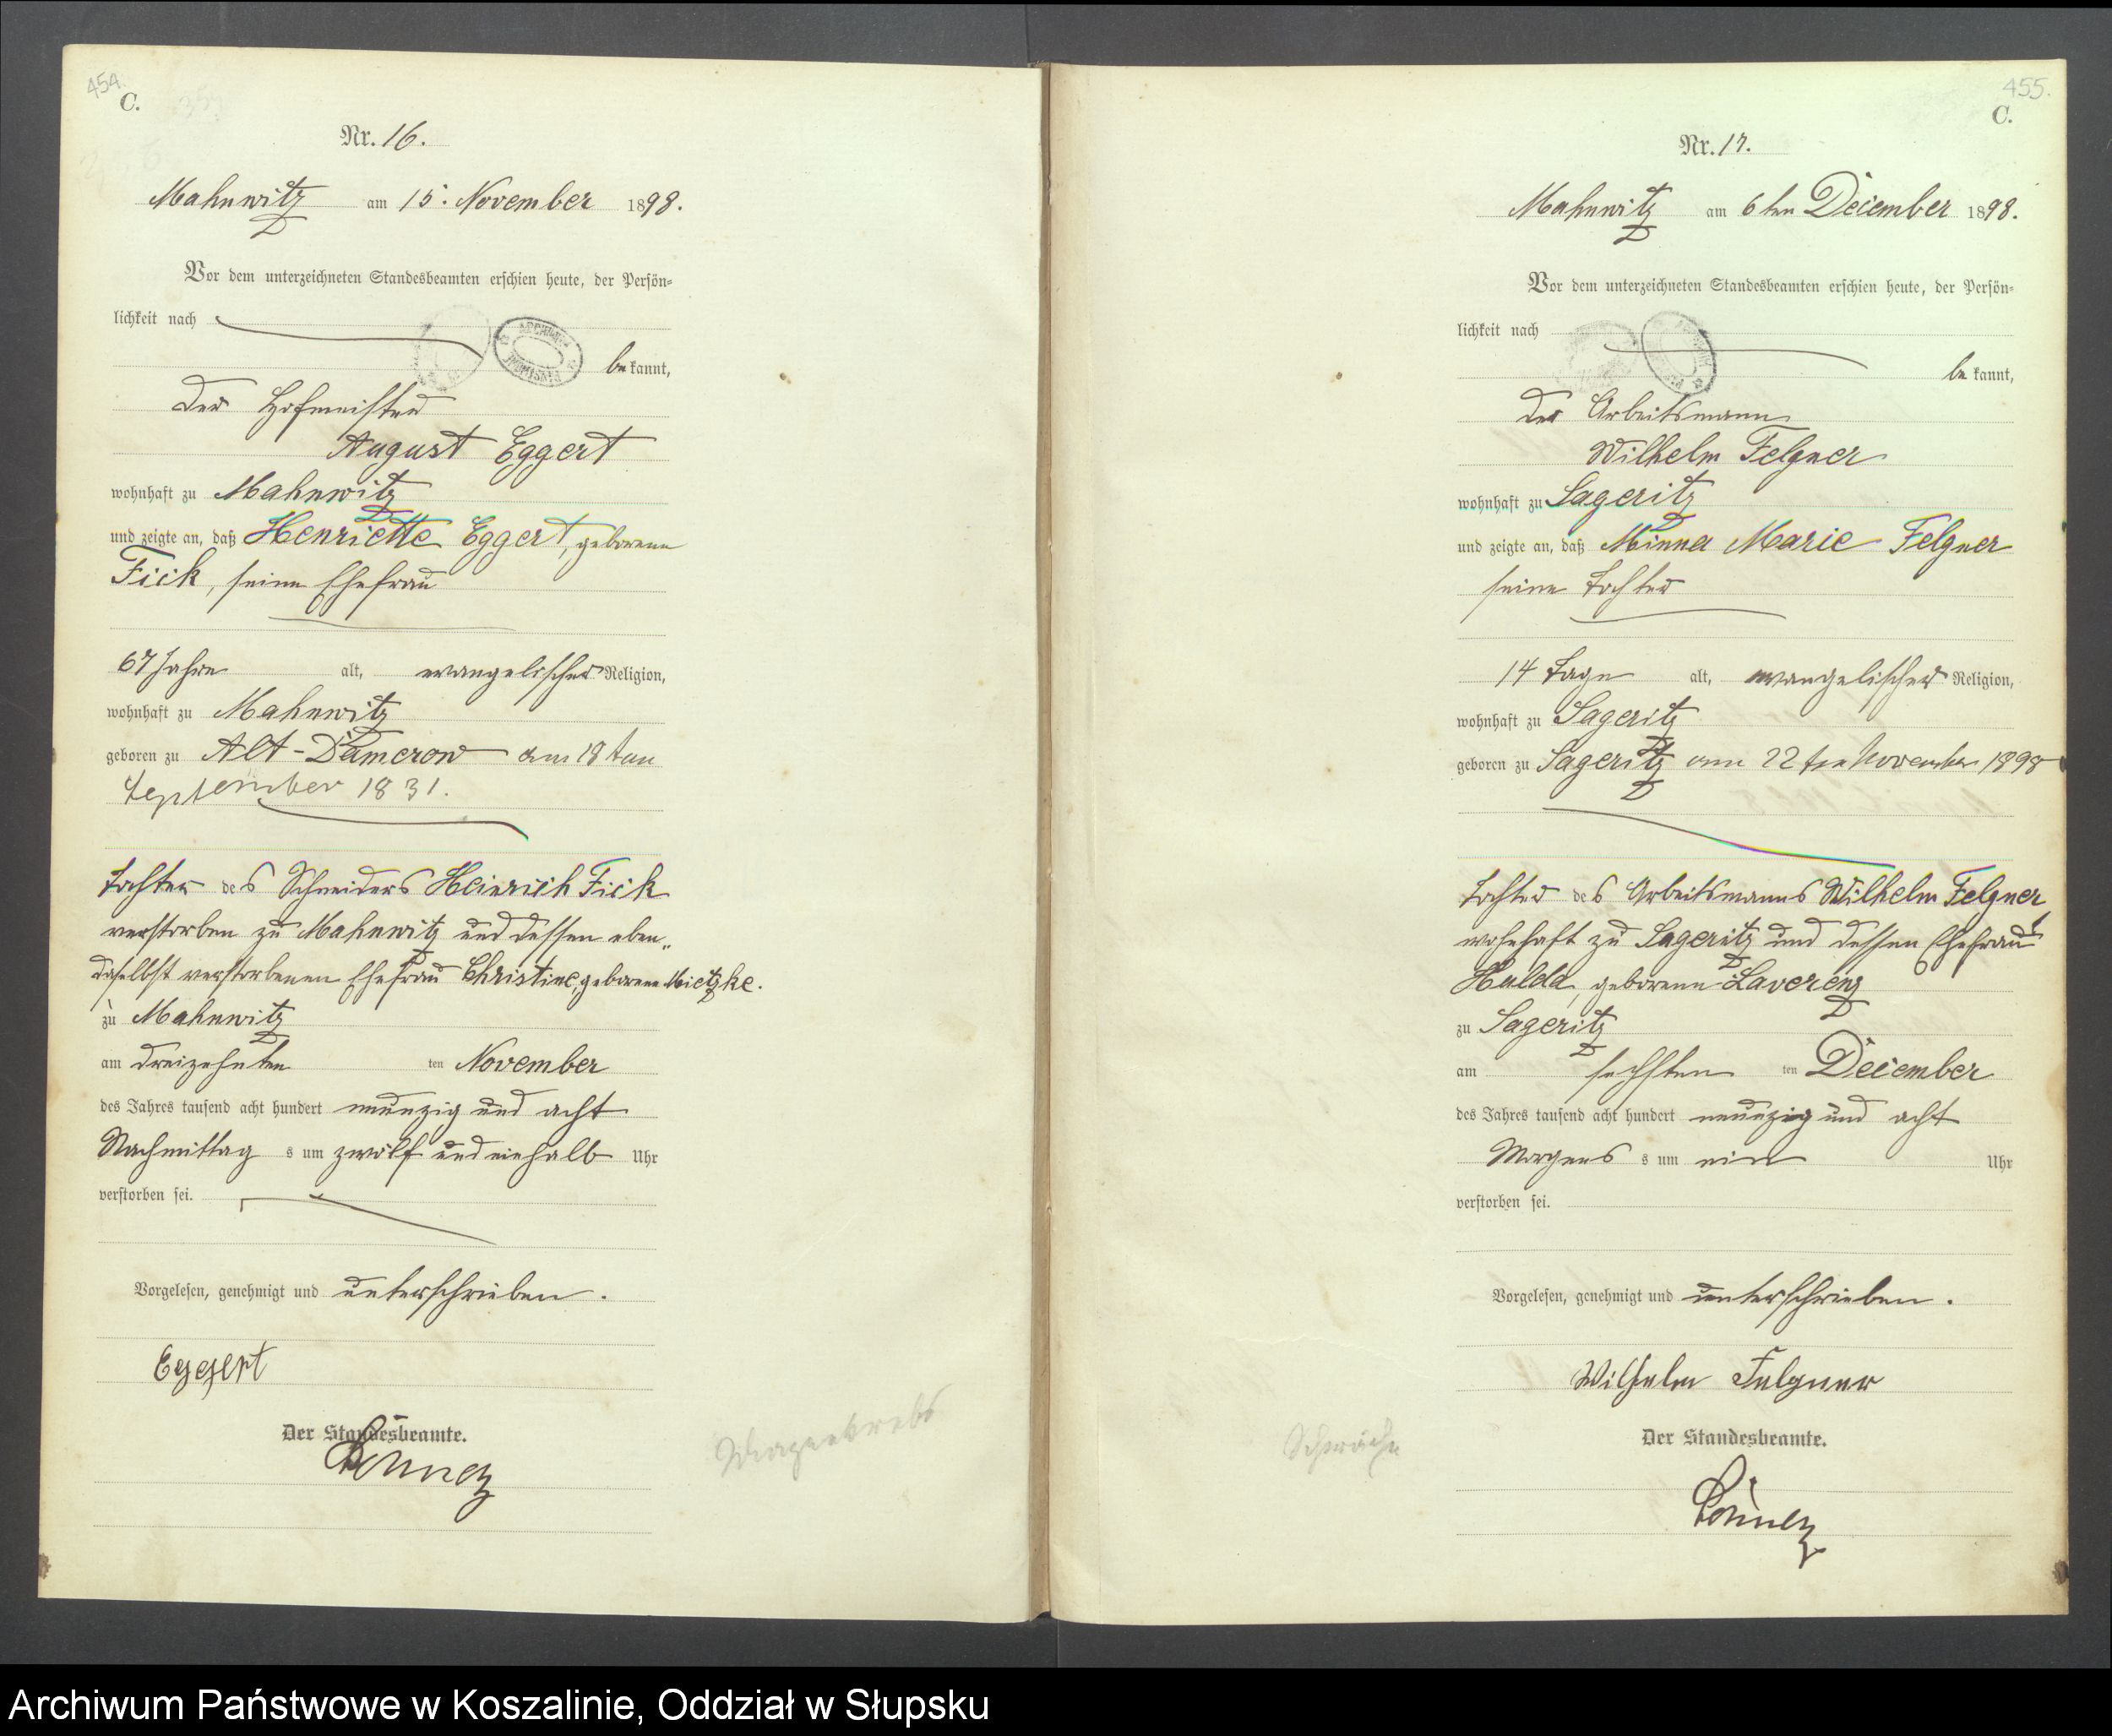 454.
C.
Nr. 16.
Mahnwitz am 15. November 1898.
Vor dem unterzeichneten Standesbeamten erschien heute, der Persön-
lichkeit nach
bekannt,
der Hofmeister
August Eggert
wohnhaft zu Mahnwitz
und zeigte an, daß Henriette Eggert, geborene
Fick, seine Ehefrau
67 Jahre alt, evangelischer Religion,
wohnhaft zu Mahnwitz
geboren zu Alt-Damerow am 18 ten
September 1831.
Tochter des Schneiders Heinrich Fick
verstorben zu Mahnwitz und dessen eben-
daselbst verstorbenen Ehefrau Christine, geborene Mietzke.
zu Mahnwitz
am dreizehnten ten November
des Jahres tausend acht hundert neunzig und acht
Nachmittag s um zwölf und einhalb Uhr
verstorben sei.
Vorgelesen, genehmigt und unterschrieben.
Eggert
Der Standesbeamte.
Magenkrebs
455.
C.
Nr. 17.
Mahnwitz am 6ten December 1898.
Vor dem unterzeichneten Standesbeamten erschien heute, der Persön-
lichkeit nach
bekannt,
der Arbeitsmann
Wilhelm Felgner
wohnhaft zu Sageritz
und zeigte an, daß Minna Marie Felgner
seine Tochter
14 Tage alt, evangelischer Religion,
wohnhaft zu Sageritz
geboren zu Sageritz am 22 ten November 1898
Tochter des Arbeitsmanns Wilhelm Felgner,
wohnhaft zu Sageritz und dessen Ehefrau
Hulda, geborene Laverenz
zu Sageritz
am sechsten ten December
des Jahres tausend acht hundert neunzig und acht
Morgens s um ein Uhr
verstorben sei.
Vorgelesen, genehmigt und unterschrieben.
Wilhelm Felgner
Der Standesbeamte.
Schwäche
Archiwum Państwowe w Koszalinie, Oddział w Słupsku